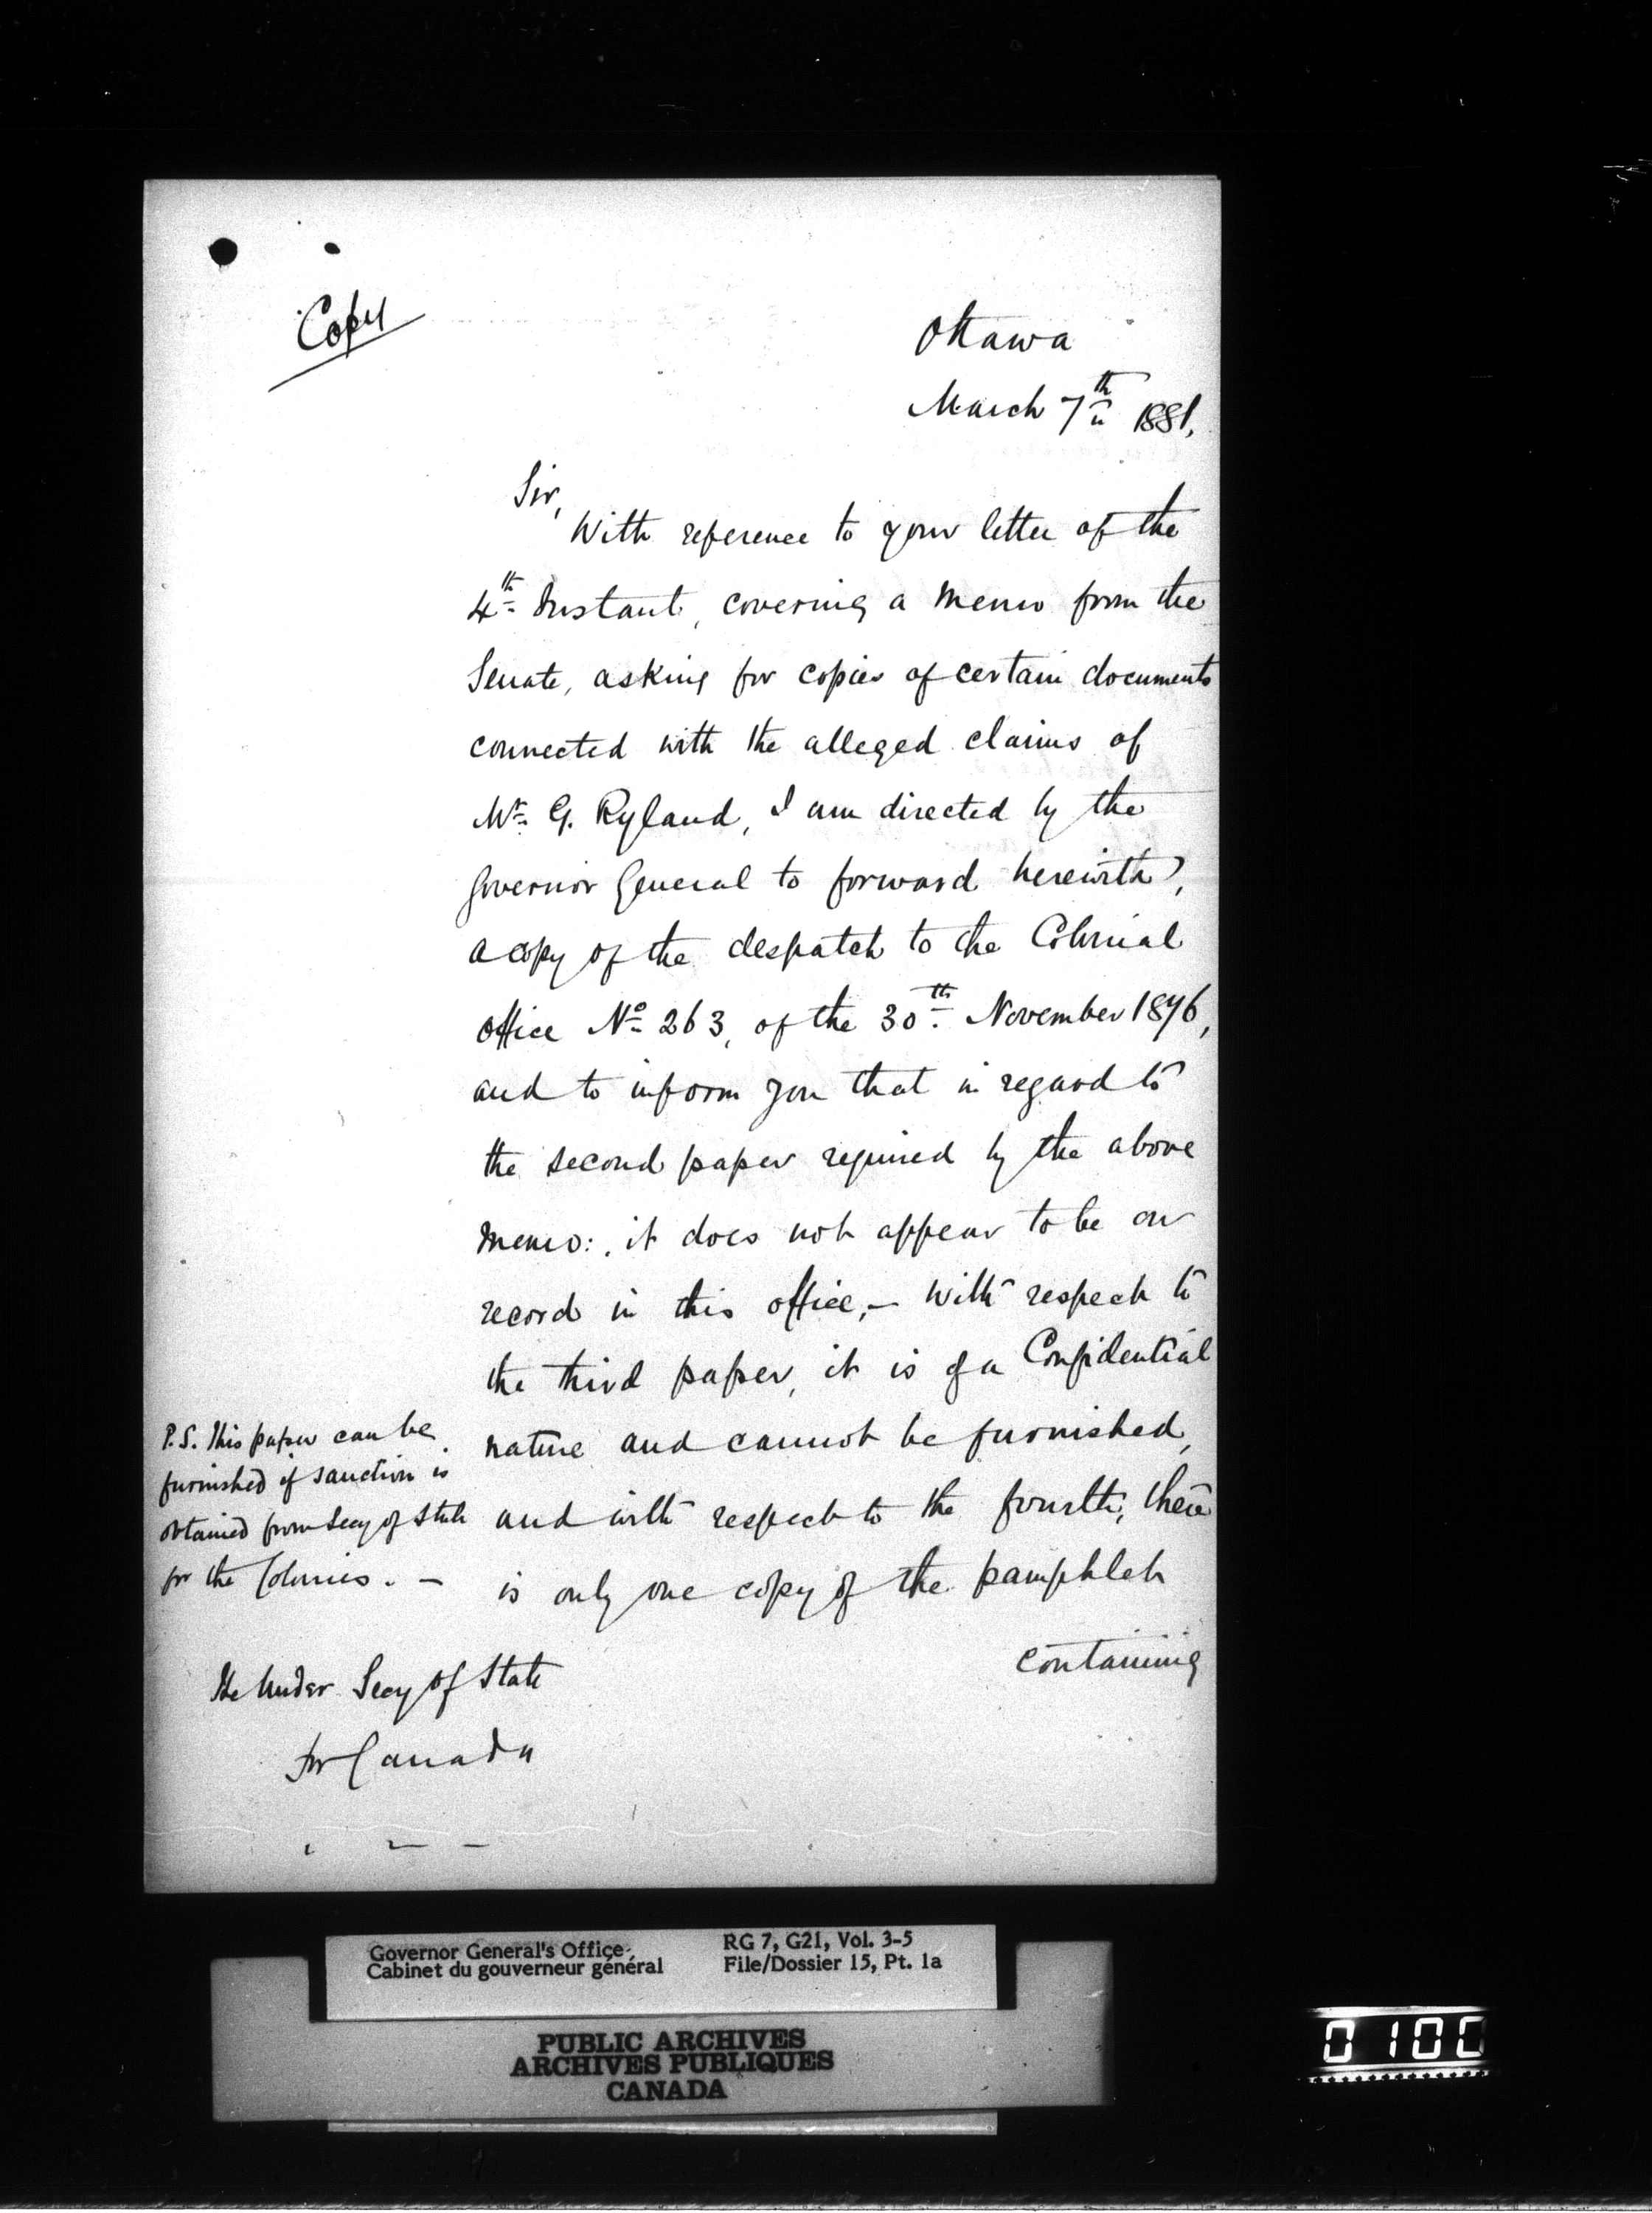 Copy
Ottawa
March 7th 1881,
Sir,
With reference to your letter of the
4th Instant, covering a memo from the
Senate, asking for copies of certain documents
connected with the alleged claims of
Mr. G. Ryland, I am directed by the
Governor General to forward herewith,
a copy of the despatch to the Colonial
Office No. 263, of the 30th November 1876,
and to inform you that in regard to
the second paper required by the above
memo:, it does not appear to be on
record in this office,— With respect to
the third paper, it is of a Confidential
nature and cannot be furnished,
and with respect to the fourth, there
is only one copy of the pamphlet
containing
P.S. This paper can be
furnished if sanction is
obtained from Secy of State
for the Colonies. —
The Under Secy of State
for Canada
Governor General's Office
Cabinet du gouverneur général
RG 7, G21, Vol. 3-5
File/Dossier 15, Pt. 1a
PUBLIC ARCHIVES
ARCHIVES PUBLIQUES
CANADA
0100